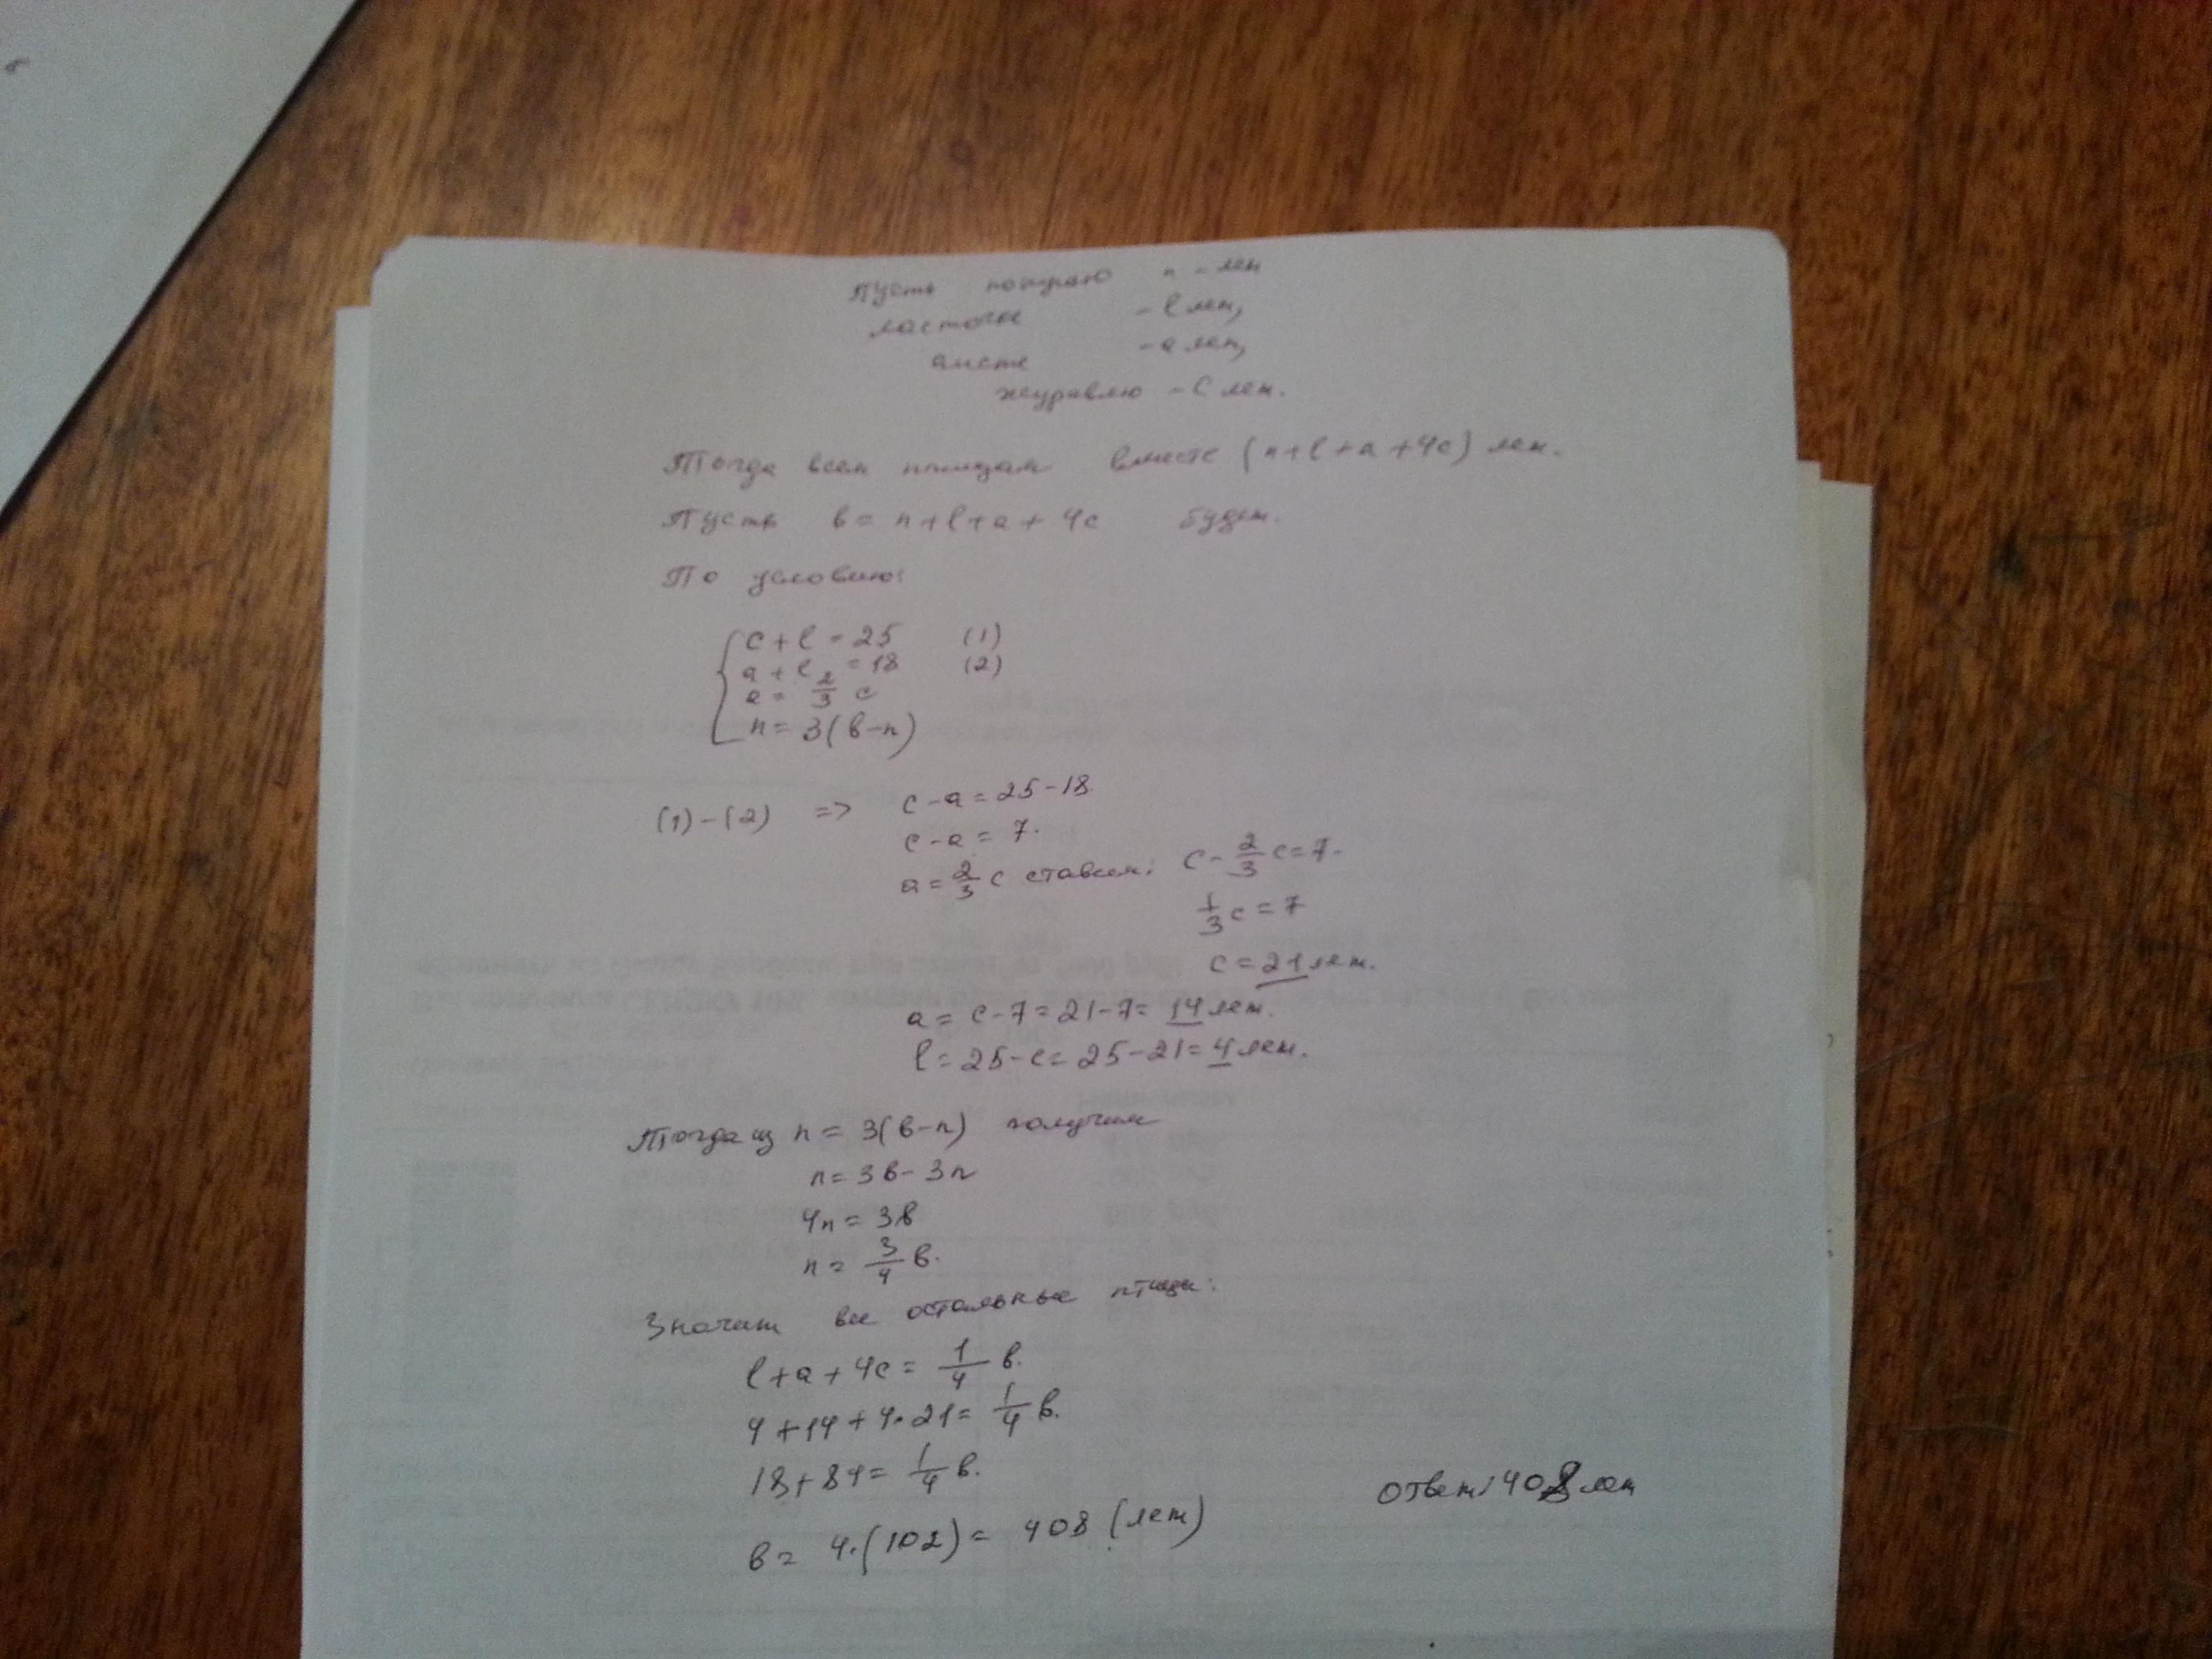 Пусть попугаю n - лет
ласточке - l лет,
аисте - a лет,
журавлю - c лет.
Тогда всем птицам вместе (n+l+a+4c) лет.
Пусть в = n+l+a+4c будет.
По условию:
c+l=25 (1)
a+l=18 (2)
a = 2/3 c
n = 3(в-n)
(1)-(2) => c-a=25-18.
c-a=7.
a=2/3 c ставим: c-2/3 c=7.
1/3 c=7
c=21 лет.
a = c-7=21-7=14 лет.
l=25-c=25-21=4 лет.
Тогда из n = 3(в-n) получим
n=3в-3n
4n=3в
n = 3/4 в.
Значит все остальные птицы:
l+a+4c= 1/4 в.
4+14+4·21= 1/4 в.
18+84= 1/4 в.
в= 4·(102)= 408 (лет)
Ответ: 408 лет